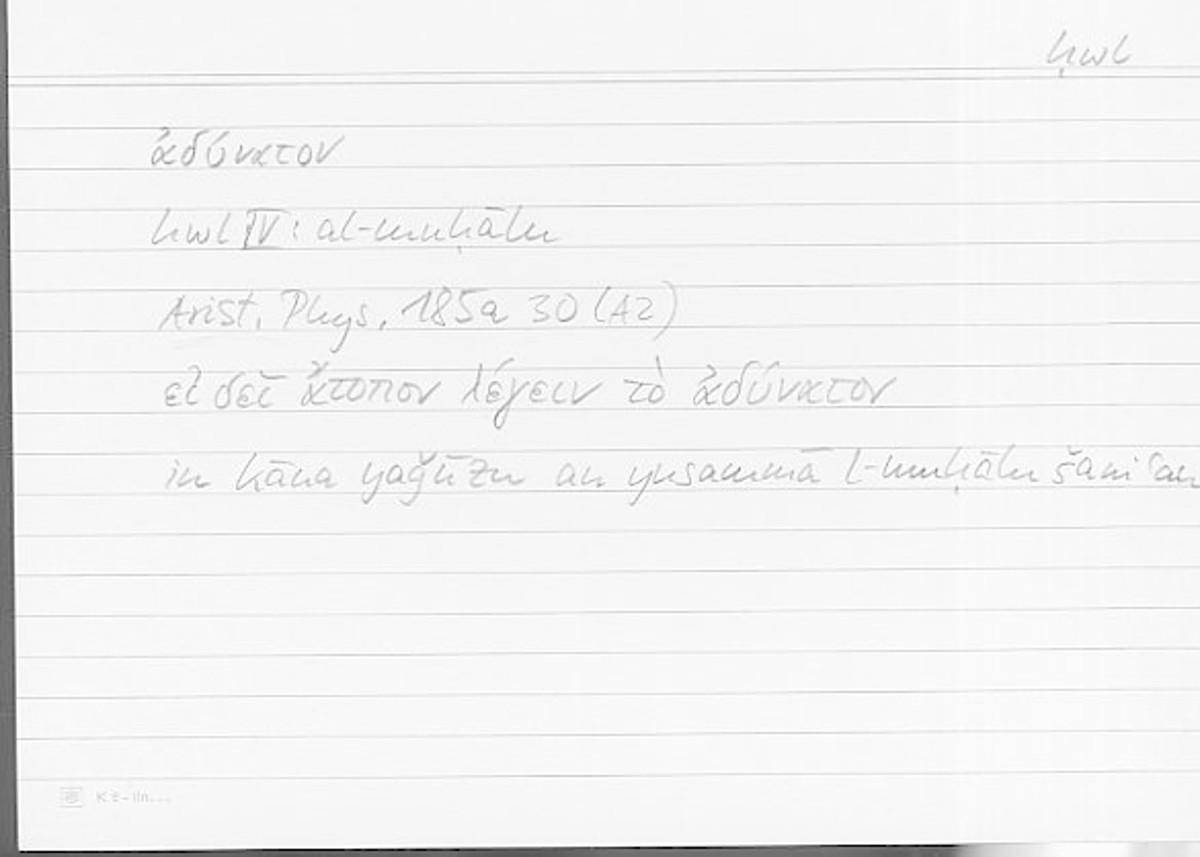 ḥwl
ἀδύνατον
hwl IV: al-muḥālu
Arist. Phys. 185a 30 (A2)
εἰ δεῖ ἄτοπον λέγειν τὸ ἀδύνατον
in kāna yaǧūzu an yusammā l-muḥālu šaniʿan